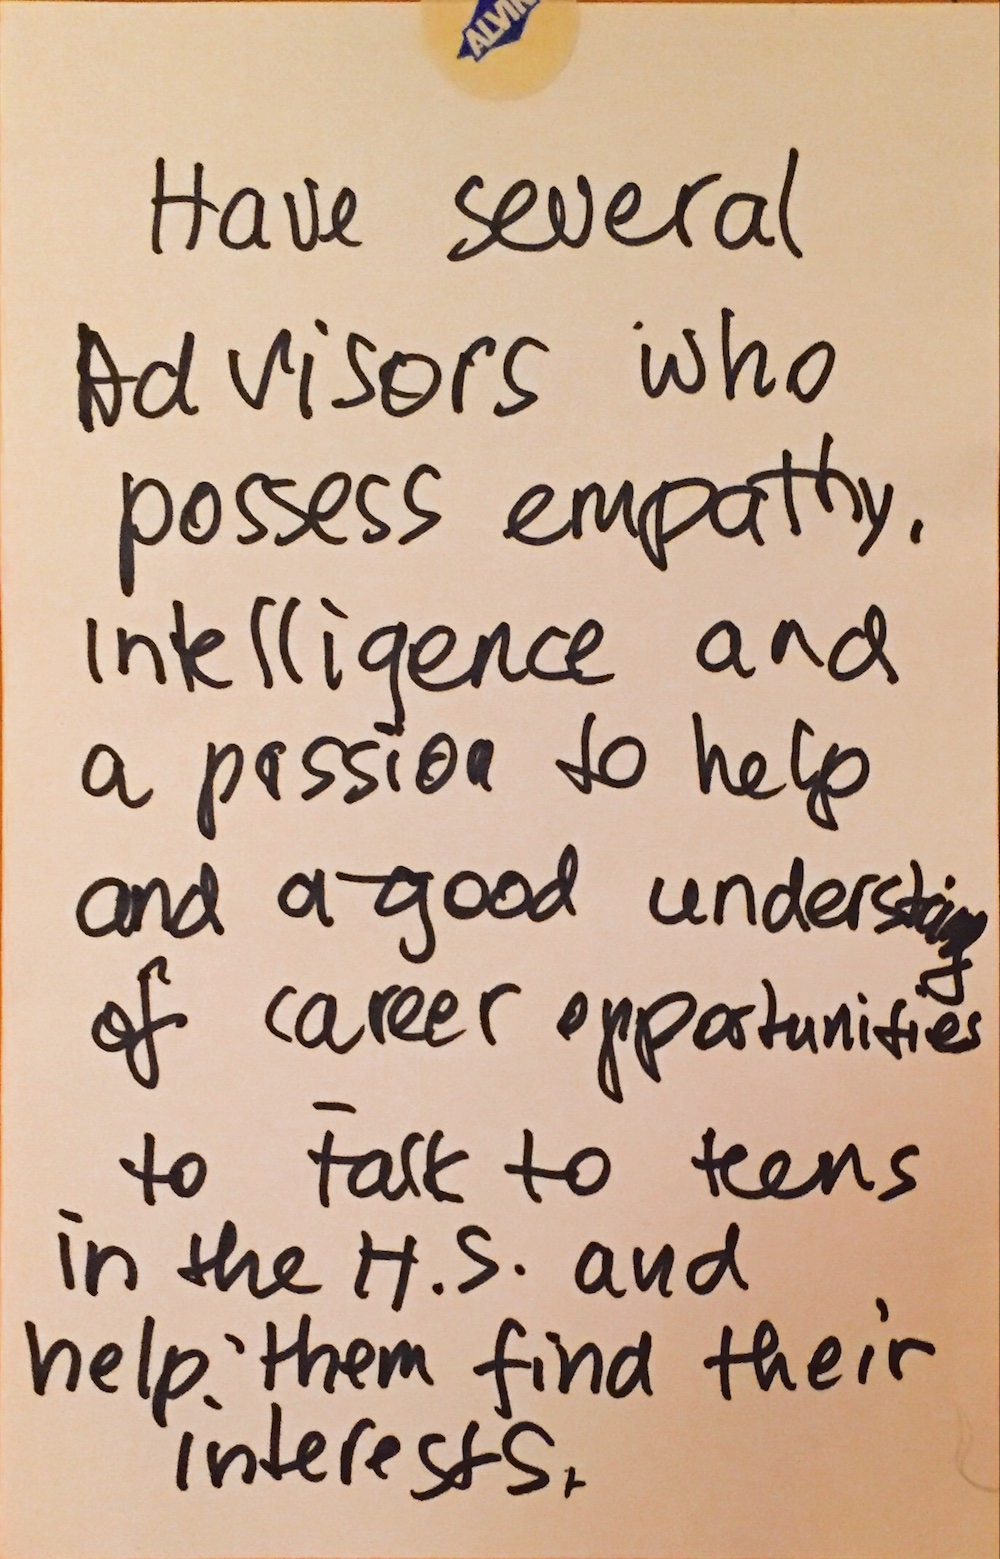 ALVIN
Have several
Advisors who
possess empathy,
intelligence and
a passion to help
and a good understaing
of career opportunities
to talk to teens
in the H.S. and
help them find their
interests.